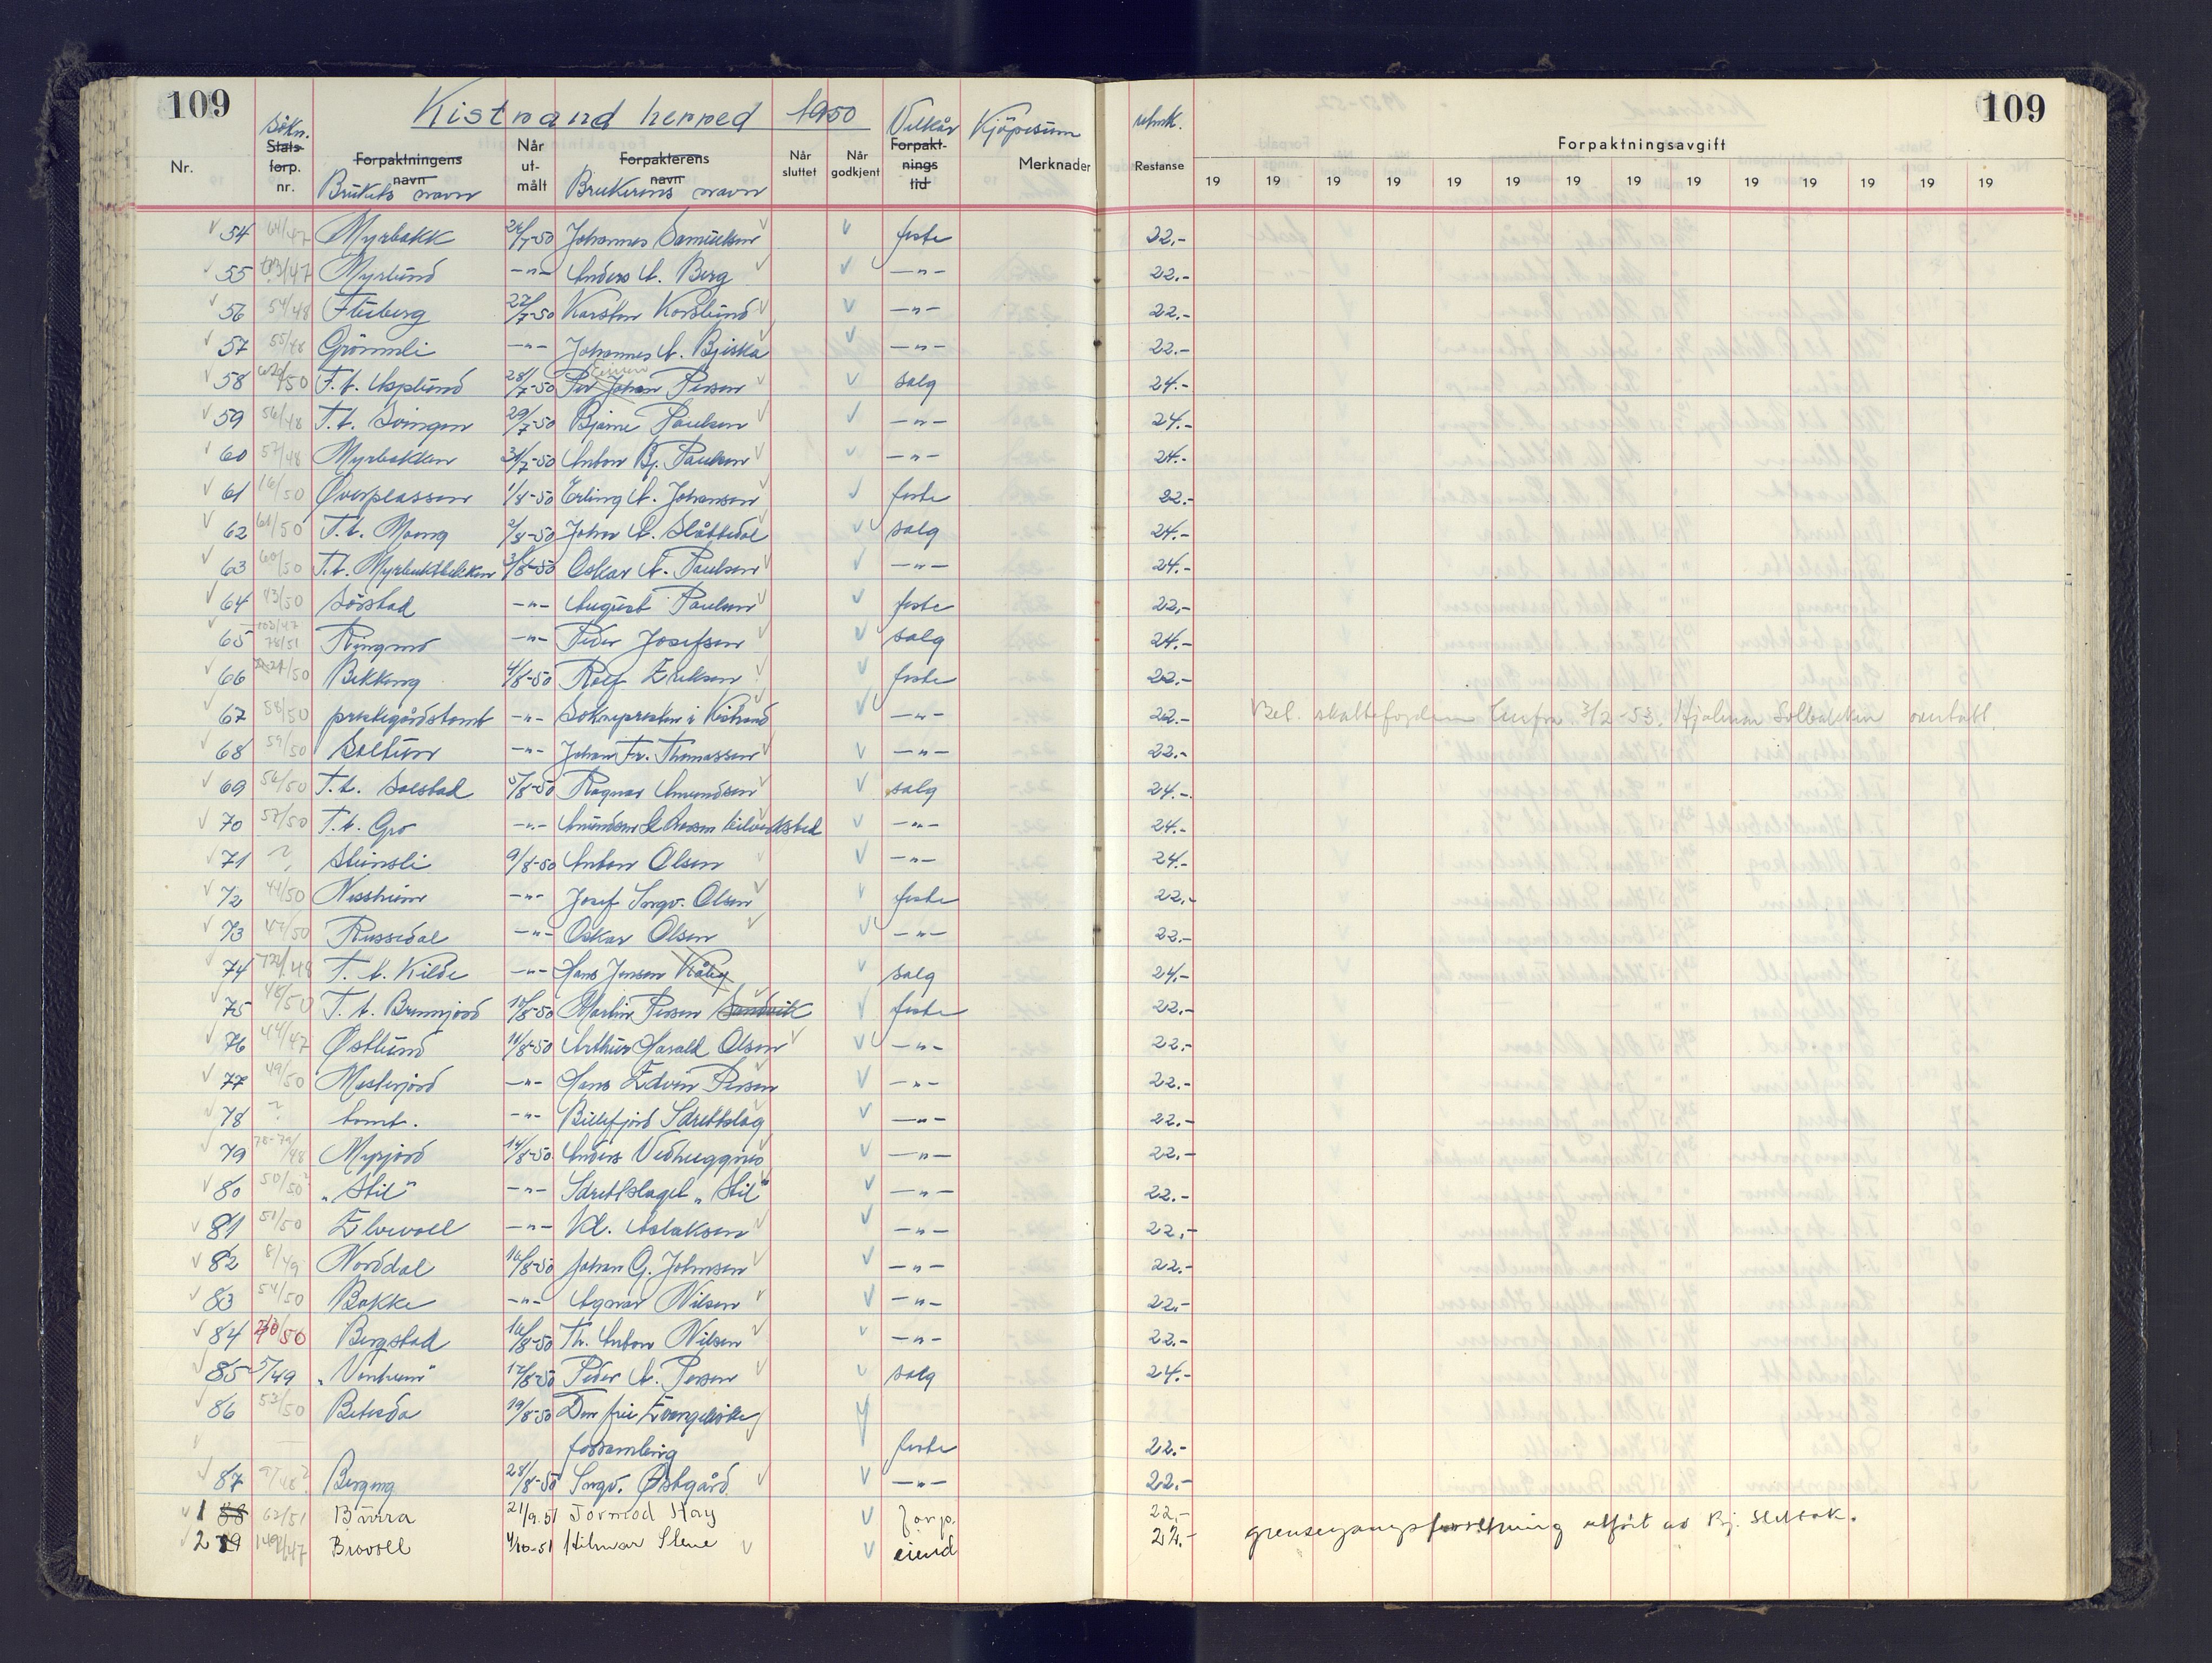 109 Kistrand herred 1950 109
Nr. Søkn. Stats- forp. nr. Forpaktningens navn Brukets navn Når ut- målt Forpakterens navn Brukerens navn Når sluttet Når godkjent Vilkår Forpakt- nings tid Kjøpesum Merknader Restanse Forpaktningsavgift
19 19 19 19 19 19 19 19 19 19 19 19 19 19
54 64/47 Myrbakk 26/7-50 Johannes Samuelsen feste 22.-
55 103/47 Myrlund -"- Anders A. Berg -"- 22.-
56 54/48 Fluberg 27/7-50 Karsten Korslund -"- 22.-
57 55/48 Grönnli -"- Johannes A. Bjiska -"- 22.-
58 /50 T.t. Asplund 28/7-50 Per Johan Persen salg 24.-
59 56/48 T.t. Svingen 29/7-50 Bjarne Paulsen -"- 24.-
60 57/48 Myrbakken 31/7-50 Anton Bj. Paulsen -"- 24.-
61 16/50 Øverplassen 1/8-50 Erling A. Johansen feste 22.-
62 61/50 T.t. Moeng 2/8-50 Johan A. Slåttedal salg 24.-
63 60/50 T.t. Myrbuktbakken 3/8-50 Oskar A. Paulsen -"- 24.-
64 43/50 Sörstad -"- August Paulsen feste 22.-
65 103/47 78/51 Ringmo -"- Peder Josefsen salg 24.-
66 /50 Bekkeng 4/8-50 Rolf Eriksen feste 22.-
67 58/50 prestegårdstomt -"- Soknepresten i Kistrand -"- 22.- Bet. skattefogden 3/2-53, Hjalmar Solbakken overtatt
68 59/50 Soltun -"- Johan Fr. Thomassen -"- 22.-
69 56/50 T.t. Solstad 5/8-50 Ragnar Amundsen salg 24.-
70 57/50 T.t. Gro -"- Amundsen & Persen bilverksted -"- 24.-
71 ? Steinsli 9/8-50 Anton Olsen -"- 24.-
72 44/50 Nessheim -"- Josef Ingv. Olsen feste 22.-
73 47/50 Russedal -"- Oskar Olsen -"- 22.-
74 /48 T.t. Kilde -"- Hans Jensen salg 24.-
75 48/50 T.t. Brennjord 10/8-50 Martin Persen Sandvik feste 22.-
76 44/47 Østlund 11/8-50 Arthur Harald Olsen -"- 22.-
77 49/50 Mesterjord -"- Hans Edvin Persen -"- 22.-
78 ? tomt. -"- Billefjord Idrettslag -"- 22.-
79 78-79/48 Myrjord 14/8-50 Anders Vedhuggnes -"- 22.-
80 50/50 "Stil" -"- Idrettslaget "Stil" -"- 22.-
81 51/50 Elvevoll -"- Kl. Aslaksen -"- 22.-
82 8/49 Norddal 16/8-50 Johan G. Johnsen -"- 22.-
83 54/50 Bakke -"- Agnar Nilsen -"- 22.-
84 /50 Bergstad 16/8-50 Th. Anton Nilsen -"- 22.-
85 5/49 "Vonheim" 17/8-50 Peder A. Persen salg 24.-
86 53/50 Betesda 19/8-50 Den frie Evangeliske
forsamling feste 22.-
87 97/48? Bergeng 28/8-50 Ingv. Østgård -"- 22.-
1 88 62/51 Burra 21/9.51 Tormod Hay forp. 22.-
2 89 149/47 Brovoll 4/10-51 Hilmar Stene eiend 24.- grensegangsforretning utført av Bj. Slettvk.